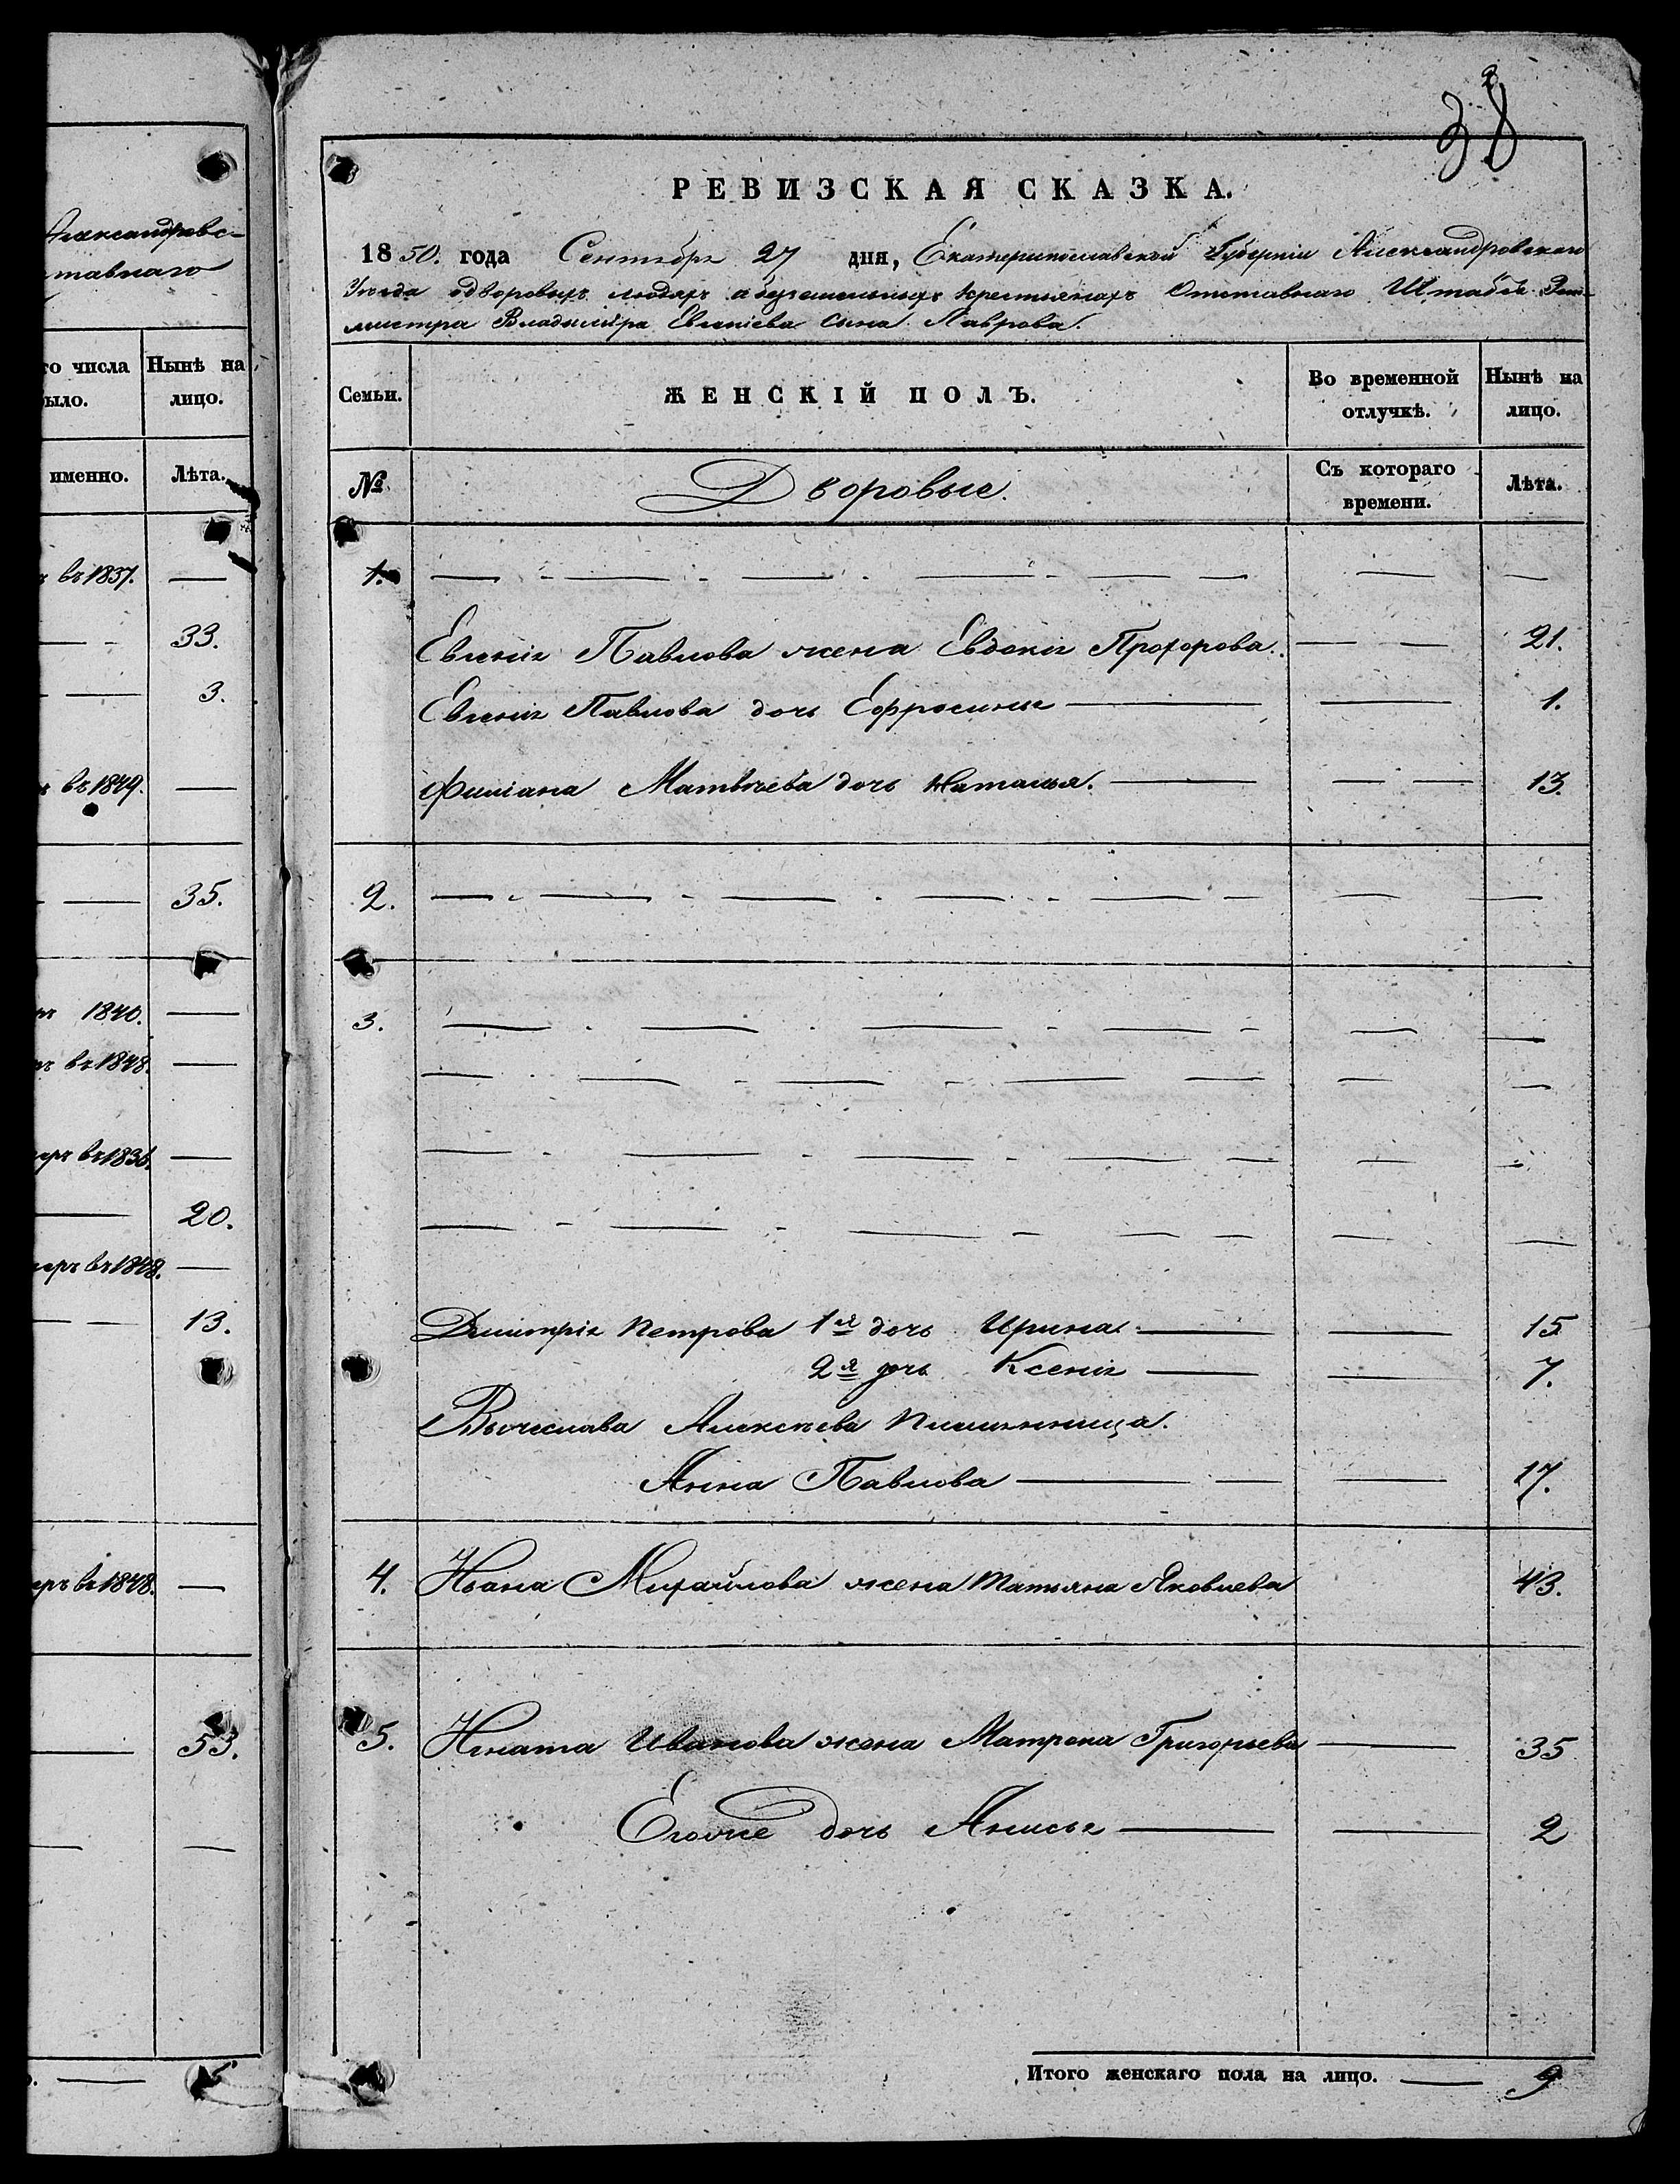 Александровс-
тавнаго
го числа
ыло.
Нынѣ на
лицо.
именно.
Лѣта.
въ 1837. —
33.
3.
въ 1849. —
35.
1840. —
въ 1848. —
въ 1836. —
20.
въ 1848. —
13.
въ 1848. —
53.
38
РЕВИЗСКАЯ СКАЗКА.
1850. года Сентября 27 дня, Екатеринославской Губерніи Александровскаго
Уѣзда одворовыхъ людяхъ и крестьянахъ Отставнаго Штабсъ Рот-
мистра Владиміра Евгеніева сына Лаврова.
Семьи.
ЖЕНСКІЙ ПОЛЪ.
Во временной
отлучкѣ.
Нынѣ на
лицо.
№
Дворовые.
Съ котораго
времени.
Лѣта.
1.
Евгенія Павлова жена Евдокія Прохорова. 21.
Евгенія Павлова дочь Ефросинья 1.
Матвѣева дочь Наталья. 13.
2.
3.
Дмитрія Петрова 1я дочь Ирина 15
2я дочь Ксенія 7.
Вячеслава Алексѣева Племянница.
Анна Павлова 17.
4. Ивана Михайлова жена Татьяна Яковлева 43.
5. Игната Иванова жена Матрена Григорьева 35
Егоже дочь Анисья 2
Итого женскаго пола на лицо. 9